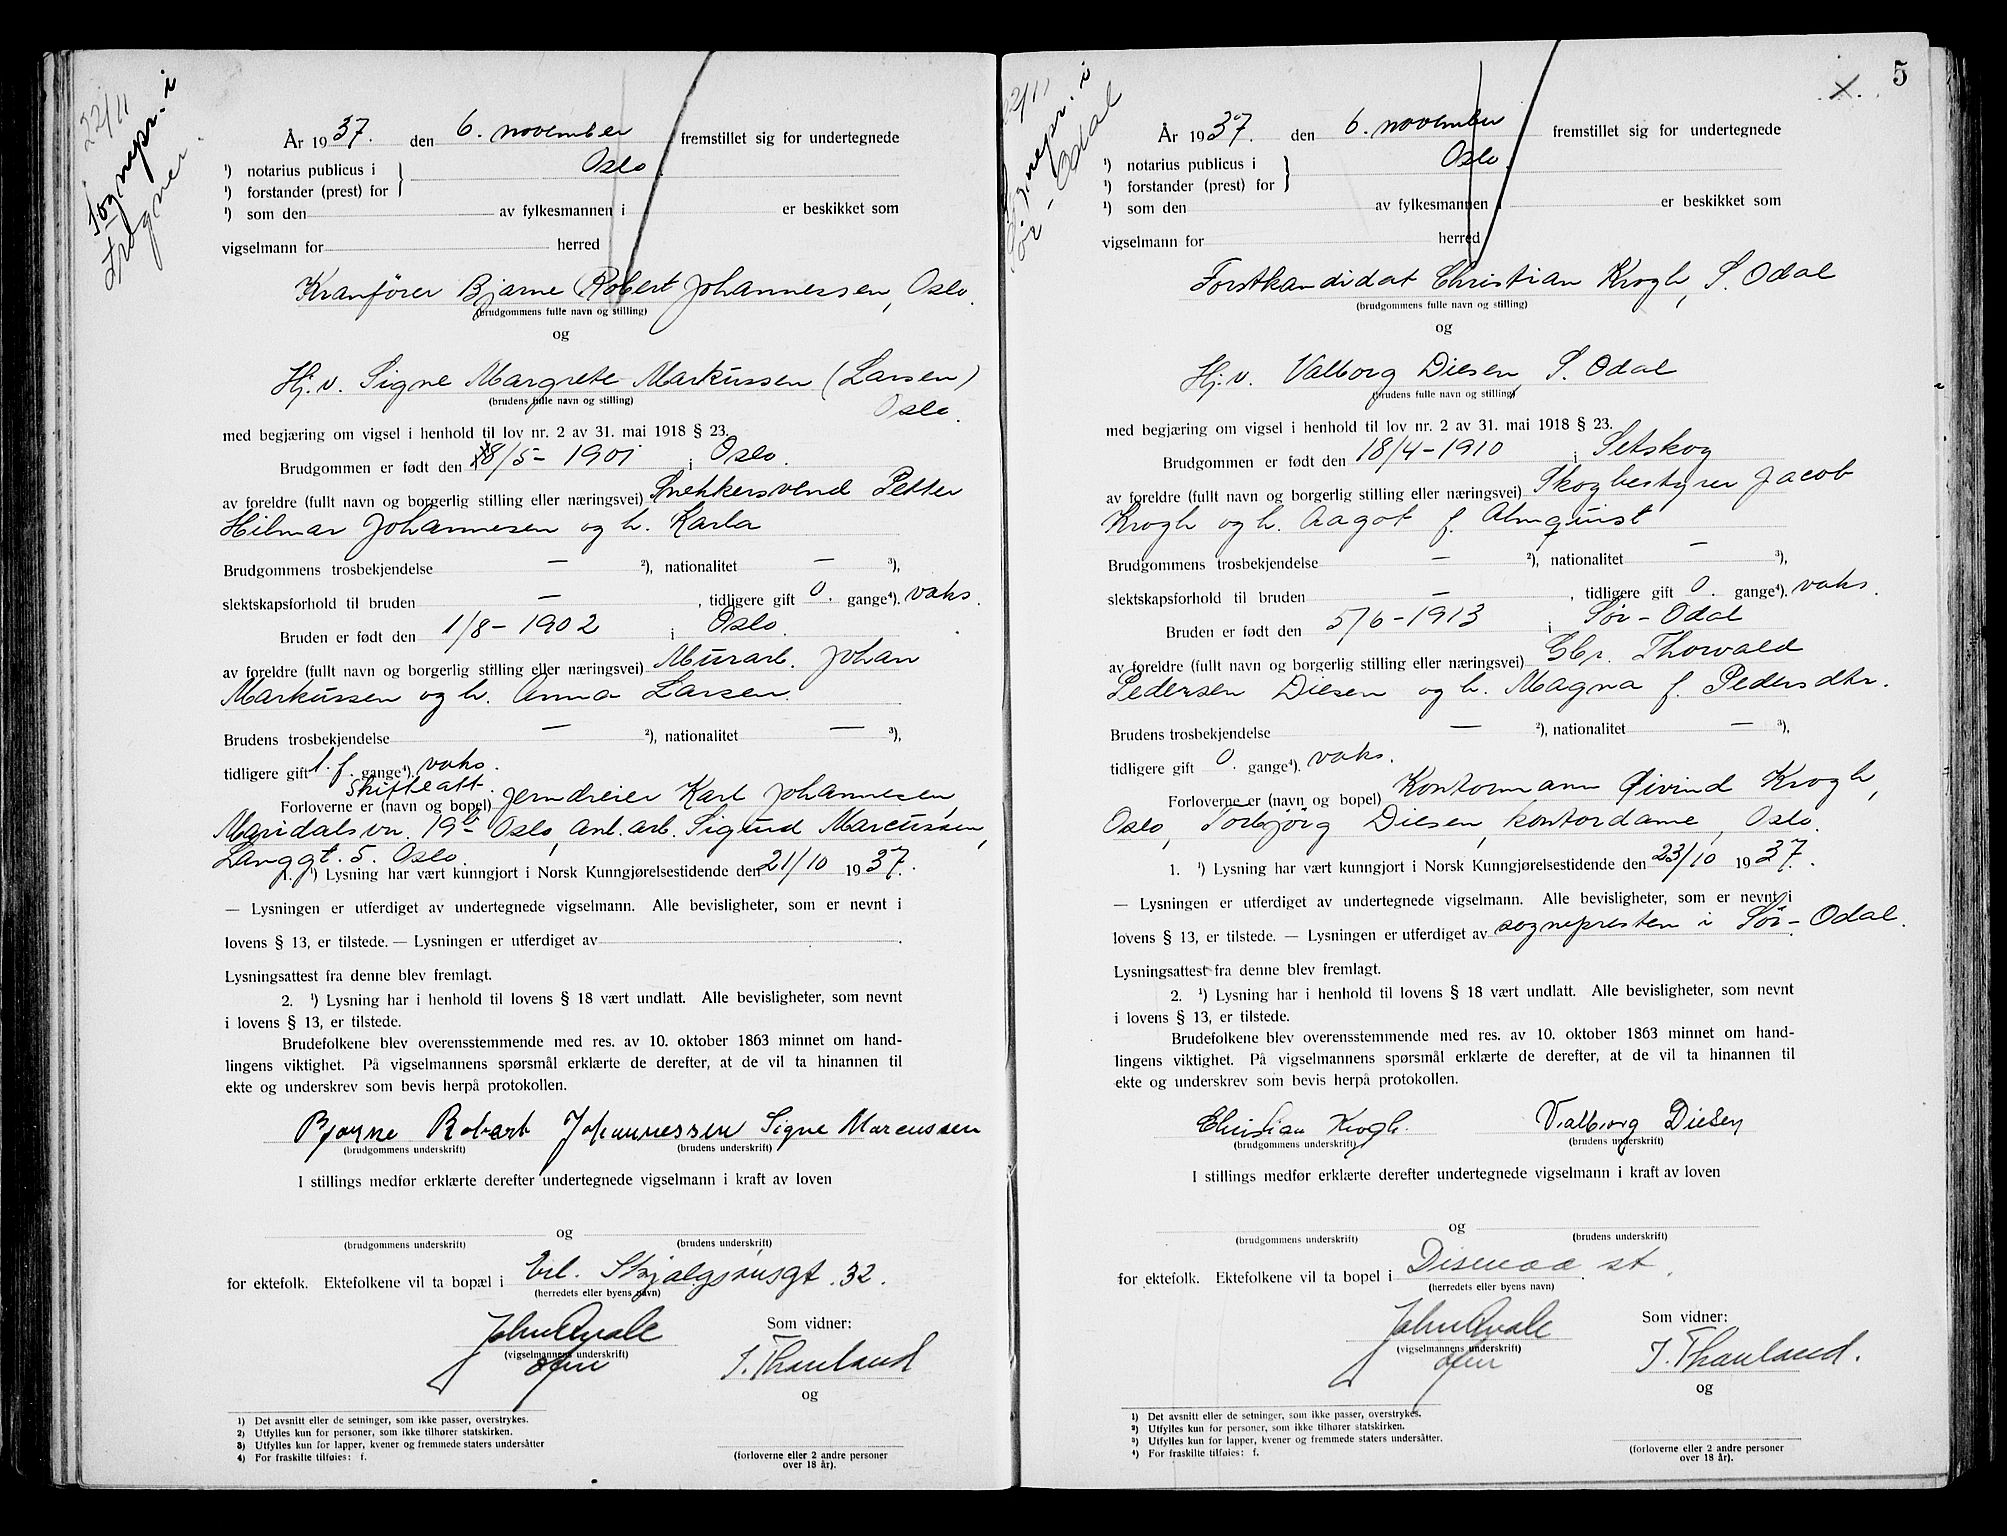 22/11
Sognepr. i
Frogner.
År 1937. den 6. november fremstillet sig for undertegnede
¹) notarius publicus i } Oslo.
¹) forstander (prest) for
¹) som den av fylkesmannen i er beskikket som
vigselmann for herred
Kranfører Bjarne Robert Johannessen, Oslo.
(brudgommens fulle navn og stilling)
og
Hj.v. Signe Margrete Markussen (Larsen)
(brudens fulle navn og stilling)
Oslo.
med begjæring om vigsel i henhold til lov nr. 2 av 31. mai 1918 § 23.
Brudgommen er født den 18/5 - 1901 i Oslo.
av foreldre (fullt navn og borgerlig stilling eller næringsvei) Snekkersvend Petter
Hilmar Johannesen og h. Karla
Brudgommens trosbekjendelse — ²), nationalitet — ³),
slektskapsforhold til bruden — , tidligere gift 0. gange⁴). vaks.
Bruden er født den 1/8 - 1902 i Oslo.
av foreldre (fullt navn og borgerlig stilling eller næringsvei) Murarb. Johan
Markussen og h. Anna Larsen.
Brudens trosbekjendelse — ²), nationalitet — ³),
tidligere gift 1. f. gange⁴). vaks.
skifteatt.
Forloverne er (navn og bopel) Jerndreier Karl Johannesen,
Maridalsvn. 19b Oslo, anl.arb. Sigurd Marcussen,
Langgt. 5. Oslo.
1. ¹) Lysning har vært kunngjort i Norsk Kunngjørelsestidende den 21/10 1937.
— Lysningen er utferdiget av undertegnede vigselmann. Alle bevisligheter, som er nevnt i
lovens § 13, er tilstede. — Lysningen er utferdiget av
Lysningsattest fra denne blev fremlagt.
2. ¹) Lysning har i henhold til lovens § 18 vært undlatt. Alle bevisligheter, som nevnt
i lovens § 13, er tilstede.
Brudefolkene blev overensstemmende med res. av 10. oktober 1863 minnet om hand-
lingens viktighet. På vigselmannens spørsmål erklærte de derefter, at de vil ta hinannen til
ekte og underskrev som bevis herpå protokollen.
Bjarne Robert Johannessen Signe Marcussen
(brudgommens underskrift) (brudens underskrift)
I stillings medfør erklærte derefter undertegnede vigselmann i kraft av loven
og
(brudgommens underskrift) (brudens underskrift)
for ektefolk. Ektefolkene vil ta bopæl i Erl. Skjalgsønsgt. 32.
(herredets eller byens navn)
John Qvale Som vidner:
(vigselmannens underskrift)
T. Thauland
og
1) Det avsnitt eller de setninger, som ikke passer, overstrykes.
2) Utfylles kun for personer, som ikke tilhører statskirken.
3) Utfylles kun for lapper, kvener og fremmede staters undersåtter
4) For fraskilte tilføies: f.
(forloverne eller 2 andre personer
over 18 år).
X. 5
22/11
Sognepr. i
Sør-Odal
År 1937. den 6. november fremstillet sig for undertegnede
¹) notarius publicus i } Oslo.
¹) forstander (prest) for
¹) som den av fylkesmannen i er beskikket som
vigselmann for herred
Forstkandidat Christian Krogh, S. Odal
(brudgommens fulle navn og stilling)
og
Hj.v. Valborg Diesen, S. Odal
(brudens fulle navn og stilling)
med begjæring om vigsel i henhold til lov nr. 2 av 31. mai 1918 § 23.
Brudgommen er født den 18/4 - 1910 i Setskog
av foreldre (fullt navn og borgerlig stilling eller næringsvei) Skogbestyrer Jacob
Krogh og h. Aagot f. Almquist
Brudgommens trosbekjendelse — ²), nationalitet — ³),
slektskapsforhold til bruden — , tidligere gift 0. gange⁴). vaks.
Bruden er født den 5/6 - 1913 i Sør-Odal
av foreldre (fullt navn og borgerlig stilling eller næringsvei) Gbr. Thorvald
Pedersen Diesen og h. Magna f. Pedersdtr.
Brudens trosbekjendelse — ²), nationalitet — ³),
tidligere gift 0. gange⁴). vaks.
Forloverne er (navn og bopel) Kontormann Øivind Krogh,
Oslo, Torbjørg Diesen, kontordame, Oslo.
1. ¹) Lysning har vært kunngjort i Norsk Kunngjørelsestidende den 23/10 1937.
— Lysningen er utferdiget av undertegnede vigselmann. Alle bevisligheter, som er nevnt i
lovens § 13, er tilstede. — Lysningen er utferdiget av sognepresten i Sør-Odal.
Lysningsattest fra denne blev fremlagt.
2. ¹) Lysning har i henhold til lovens § 18 vært undlatt. Alle bevisligheter, som nevnt
i lovens § 13, er tilstede.
Brudefolkene blev overensstemmende med res. av 10. oktober 1863 minnet om hand-
lingens viktighet. På vigselmannens spørsmål erklærte de derefter, at de vil ta hinannen til
ekte og underskrev som bevis herpå protokollen.
Christian Krogh. Valborg Diesen
(brudgommens underskrift) (brudens underskrift)
I stillings medfør erklærte derefter undertegnede vigselmann i kraft av loven
og
(brudgommens underskrift) (brudens underskrift)
for ektefolk. Ektefolkene vil ta bopel i Disenaa st.
(herredets eller byens navn)
John Qvale Som vidner:
(vigselmannens underskrift)
T. Thauland.
og
1) Det avsnitt eller de setninger, som ikke passer, overstrykes.
2) Utfylles kun for personer, som ikke tilhører statskirken.
3) Utfylles kun for lapper, kvener og fremmede staters undersåtter.
4) For fraskilte tilføies: f.
(forloverne eller 2 andre personer
over 18 år).